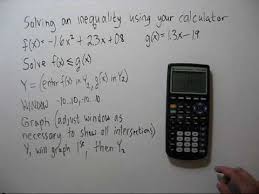 Solving an inequality using your calculator
f(x)=-1.6x²+2.3x+08 g(x)=1.3x-1.9
Solve f(x)≤g(x)
Y= (enter f(x) in Y₁, g(x) in Y₂)
WINDOW -10..10, -10..10
Graph (adjust window as
necessary to show all intersections)
Y₁ will graph 1st, then Y₂